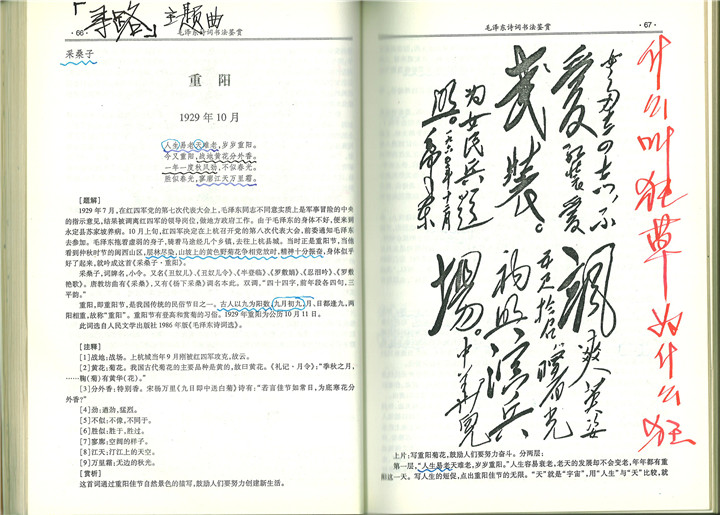 「寻路」主题曲
· 66 · 毛泽东诗词书法鉴赏
采桑子
重 阳
1929 年 10 月
人生易老天难老,岁岁重阳。
今又重阳,战地黄花分外香。
一年一度秋风劲,不似春光。
胜似春光,寥廓江天万里霜。
[题解]
1929 年 7 月,在红四军党的第七次代表大会上,毛泽东同志不同意实质上是军事冒险的中央
的指示意见,结果被调离红四军的领导岗位,做地方政府工作。由于毛泽东的身体不好,便来到
永定县苏家坡养病。10 月上旬,红四军决定在上杭召开的第八次代表大会,前委通知毛泽东
去参加。毛泽东拖着虚弱的身子,骑着马途经几个乡镇,去往上杭县城。当时正是重阳节,当他
看到仲秋时节的闽西山区,层林尽染,山坡上的黄色野菊花争相竞放时,精神十分振奋,身体似乎
好了起来,就吟成这首《采桑子·重阳》。
采桑子,词牌名,小令。又名《丑奴儿》、《丑奴儿令》、《半登临》、《罗敷媚》、《忍泪吟》、《罗敷
艳歌》。唐教坊曲有《采桑》,又有《杨下采桑》调名本此。双调,“四十四字,前后段各四句,三
平韵。”
重阳,即重阳节,是我国传统的民俗节日之一。古人以九为阳数,九月初九,月、日都逢九,两
阳相重,故称“重阳”。重阳节有登高和赏菊的习俗。1929 年重阳为公历 10 月 11 日。
此词选自人民文学出版社 1986 年版《毛泽东诗词选》。
[注释]
[1]战地:战场。上杭城当年 9 月刚被红四军攻克,故云。
[2]黄花:菊花。我国古代菊花的主要品种是黄的,故曰黄花。《礼记·月令》:“季秋之月,
……鞠(菊)有黄华(花)。”
[3]分外香:特别香。宋杨万里《九日即中送白菊》诗有:“若言佳节如常日,为底寒花分
外香?”
[4]劲:遒劲,猛烈。
[5]不似:不像,不同于。
[6]胜似:胜于,胜过。
[7]寥廓:空阔的样子。
[8]江天:汀江上的天空。
[9]万里霜:无边的秋光。
[赏析]
这首词通过重阳佳节自然景色的描写,鼓励人们要努力创建新生活。
毛泽东诗词书法鉴赏 · 67 ·
什么叫狂草——为什么狂
飒爽英姿
五尺枪 曙光
初照演兵
场。中华儿
女多奇志 不
爱红装爱
武装。
为女民兵题
照。
毛泽东
上片:写重阳菊花,鼓励人们要努力奋斗。分两层:
第一层,“人生易老天难老,岁岁重阳。”人生容易衰老,老天的发展却不会变老,年年都有重
阳这一天。写人生的短促,点出重阳佳节的无限。“天”就是“宇宙”,用“人生”与“天”比较,就